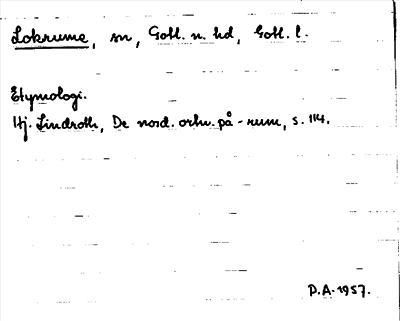 Lokrume, sn, Gotl. n. hd, Gotl. l.
Etymologi.
Hj. Lindroth, De nord. ortn. på -rum, s. 114.
P.A. 1957.